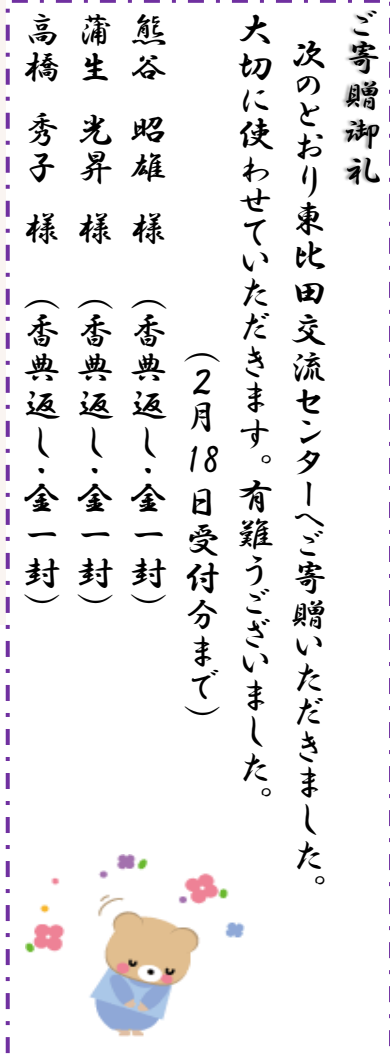 ご寄贈御礼
次のとおり東比田交流センターへご寄贈いただきました。
大切に使わせていただきます。有難うございました。
(2月18日受付分まで)
熊谷 昭雄 様 (香典返し・金一封)
蒲生 光昇 様 (香典返し・金一封)
高橋 秀子 様 (香典返し・金一封)